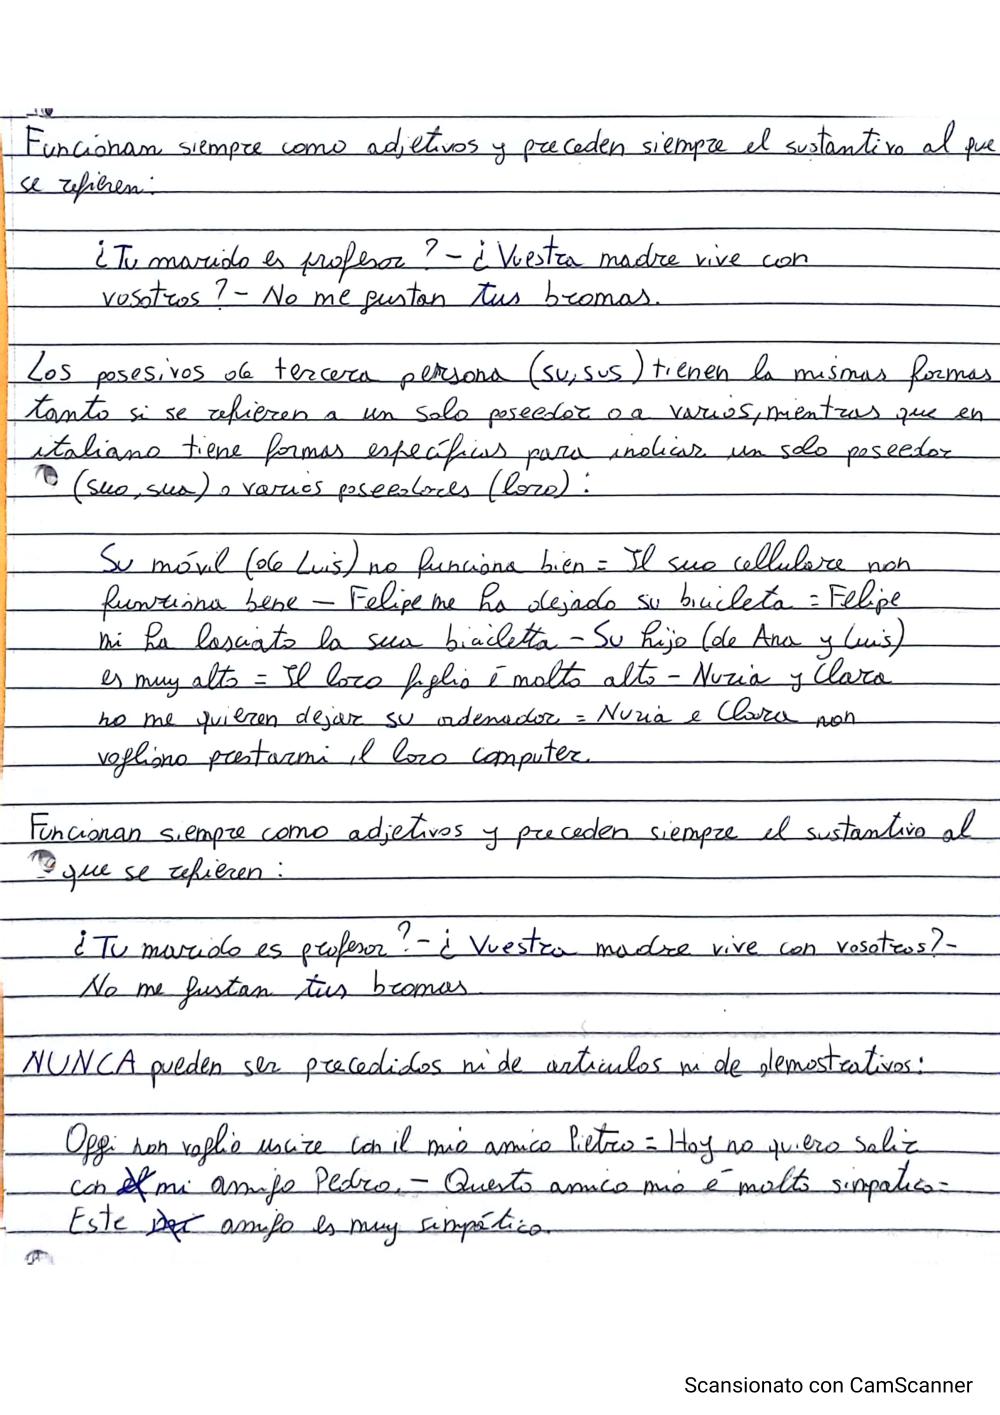 Funcionam siempre como adjetivos y preceden siempre el sustantivo al que
se refieren:
¿Tu marido es profesor? - ¿Vuestra madre vive con
vosotros? - No me gustan tus bromas.
Los posesivos de tercera persona (su, sus) tienen la mismas formas
tanto si se refieren a un solo poseedor o a varios, mientras que en
italiano tiene formas específicas para indicar un solo poseedor
(suo, sua) o varios poseedores (loro):
Su móvil (de Luis) no funciona bien = Il suo cellulare non
funziona bene - Felipe me ha dejado su bicicleta = Felipe
mi ha lasciato la sua bicicletta - Su hijo (de Ana y Luis)
es muy alto = Il loro figlio è molto alto - Nuria y Clara
no me quieren dejar su ordenador. = Nuria e Clara non
vogliono prestarmi il loro computer.
Funcionan siempre como adjetivos y preceden siempre el sustantivo al
que se refieren:
¿Tu marido es profesor? - ¿Vuestra madre vive con vosotros? -
No me gustan tus bromas
NUNCA pueden ser precedidos ni de articulos ni de demostrativos:
Oggi non voglio uscire con il mio amico Pietro = Hoy no quiero salir
con el mi amigo Pedro. - Questo amico mio è molto simpatico =
Este amigo es muy simpático.
Scansionato con CamScanner